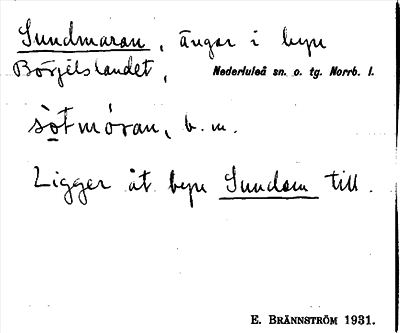 Sundmaran, ängar i byn
Börjelslandet, Nederluleå sn. o. tg. Norrb. l.
sòtmóran, b. m.
Ligger åt byn Sundom till.
E. BRÄNNSTRÖM 1931.